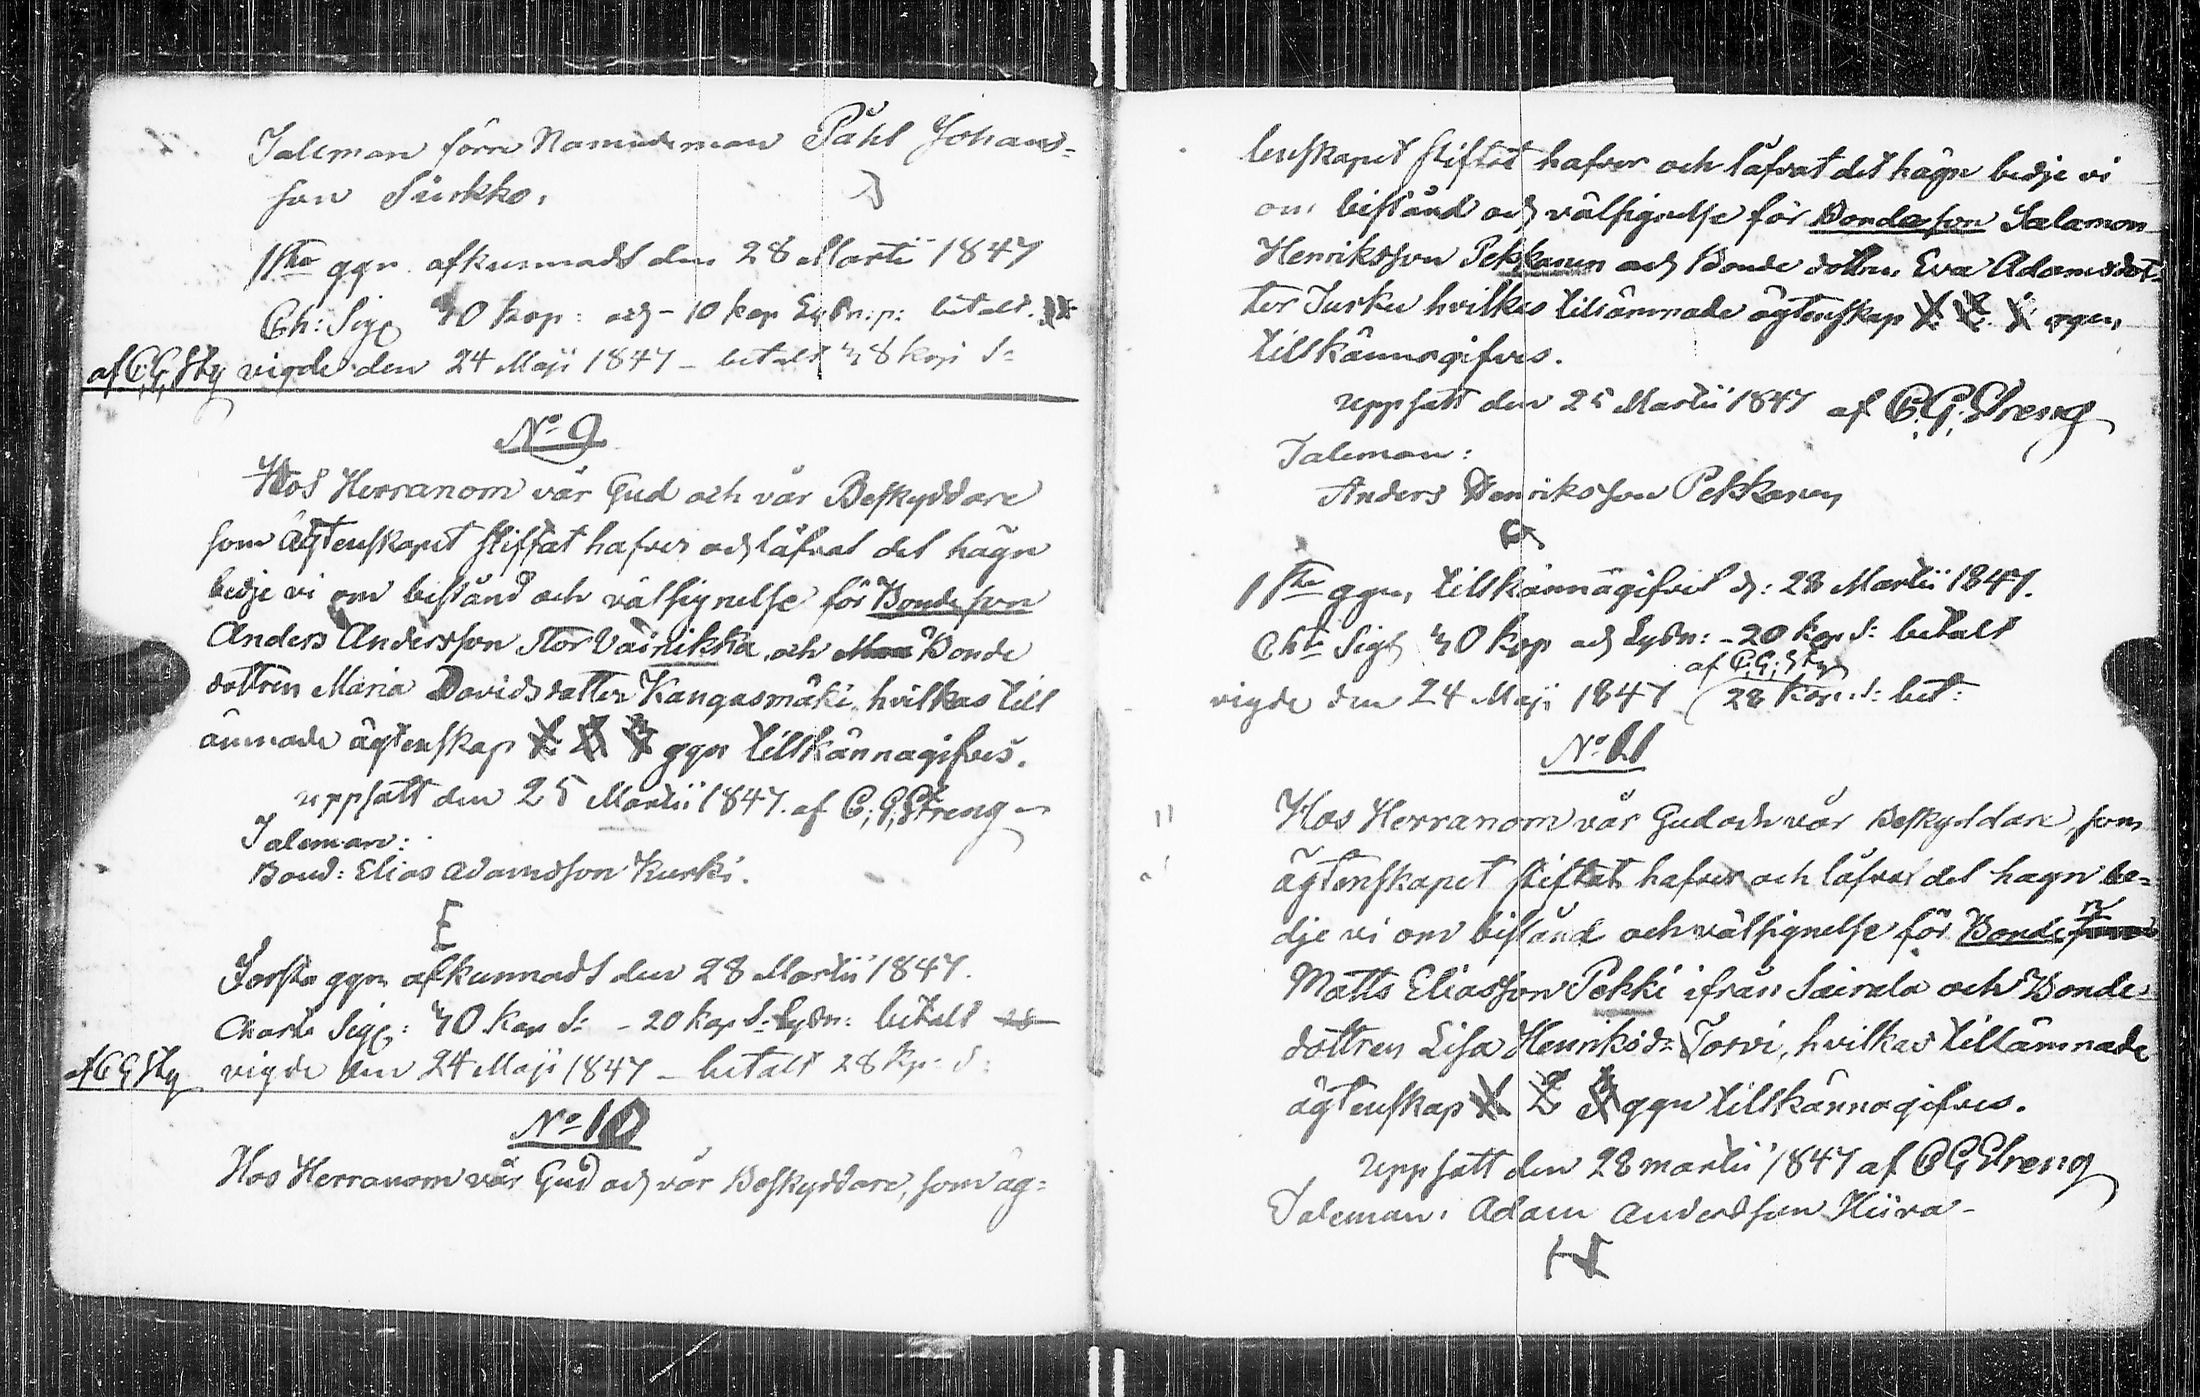 Taleman förre Nämndeman Påhl Johans-
son Siirkko.
1sta ggn afkunnadt den 28 Martii 1847
Ch: Sig 40 kop: och 10 kop Sydn:p: betalt.
af C. G. Stg vigde den 24 Maji 1847 - betalt 48 kop S:
No 9
Hos Herranom vår Gud och vår Beskyddare
som ägtenskapet stiftat hafver och låfvat det hägn
bedje vi om bistånd och välsignelse för Bondeson
Anders Andersson Stor Vainikka, och Bonde
dottren Maria Davidsdotter Kangasmäki, hvilkas till
ämnade ägtenskap 1 2 3 ggn tillkännagifves.
uppsatt den 25 Martii 1847. af C. G. Streng
Taleman:
Bond: Elias Adamsson Kurki.
E
Första ggn afkunnadt den 28 Martii 1847.
Charte Sig: 40 kop S: - 20 kop S: Sydn: betalt
af C G Stg vigde den 24 Maji 1847 - betalt 28 kp: S:
No 10
Hos Herranom vår Gud och vår Beskyddare, som äg-
tenskapet stiftat hafver och låfvat det hägn bedje vi
om bistånd och välsignelse för Bondeson Salamon
Henriksson Pekkanen och Bonde dottren Eva Adamsdot-
ter Turku hvilkas tillämnade ägtenskap 1 2 3 ggn,
tillkännagifves.
uppsatt den 25 Martii 1847 af C. G. Streng
Taleman:
Anders Henriksson Pekkanen
1sta ggn, tillkännagifvet d: 28 Martii 1847.
Chte Sig 40 kop och Sydn: - 20 kop S: betalt
af C. G. Stg
vigde den 24 Maji 1847 28 kop. S: bet:
No 11
Hos Herranom vår Gud och vår Beskyddare, som
ägtenskapet stiftat hafver och låfvat det hägn be-
dje vi om bistånd och välsignelse för Bonden
Matts Eliasson Pekki ifrån Sairala och Bonde
dottren Lisa Henriksd: Torvi, hvilkas tillämnade
ägtenskap 1 2 3 ggn tillkännagifves.
uppsatt den 28 martii 1847 af C G Streng
Taleman: Adam Andersson Hiira -